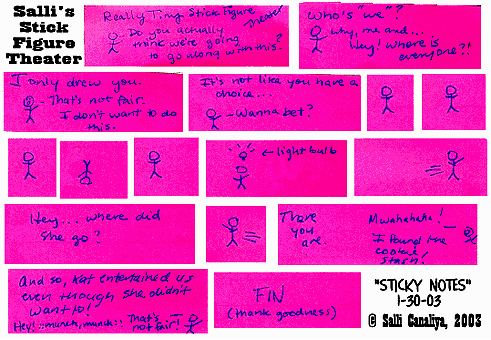 Salli's
Stick
Figure
Theater
Really Tiny Stick Figure
Theater
- Do you actually
think we're going
to go along with this?
Who's "we"?
Why, me and...
Hey! Where is
everyone?!
I only drew you.
- That's not fair.
I don't want to do
this.
It's not like you have a
choice...
- Wanna bet?
← light bulb
Hey... where did
she go?
There
you
are.
Mwahahaha!
I found the
cookie
stash!
And so, Kat entertained us
even though she didn't
want to!
Hey! ::munch, munch:: That's
not fair!
FIN
(thank goodness)
"STICKY NOTES"
1-30-03
© Salli Canaliya, 2003